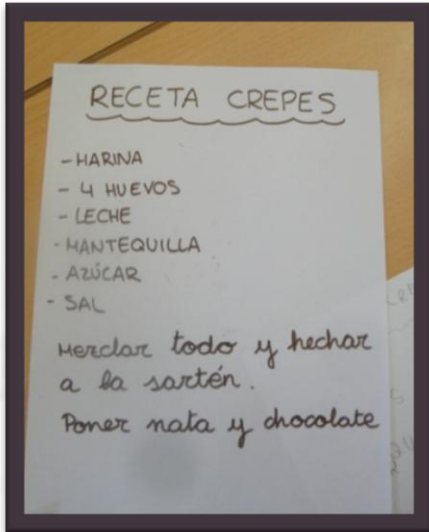 RECETA CREPES
- HARINA
- 4 HUEVOS
- LECHE
- MANTEQUILLA
- AZÚCAR
- SAL
Mezclar todo y hechar
a la sartén.
Poner nata y chocolate